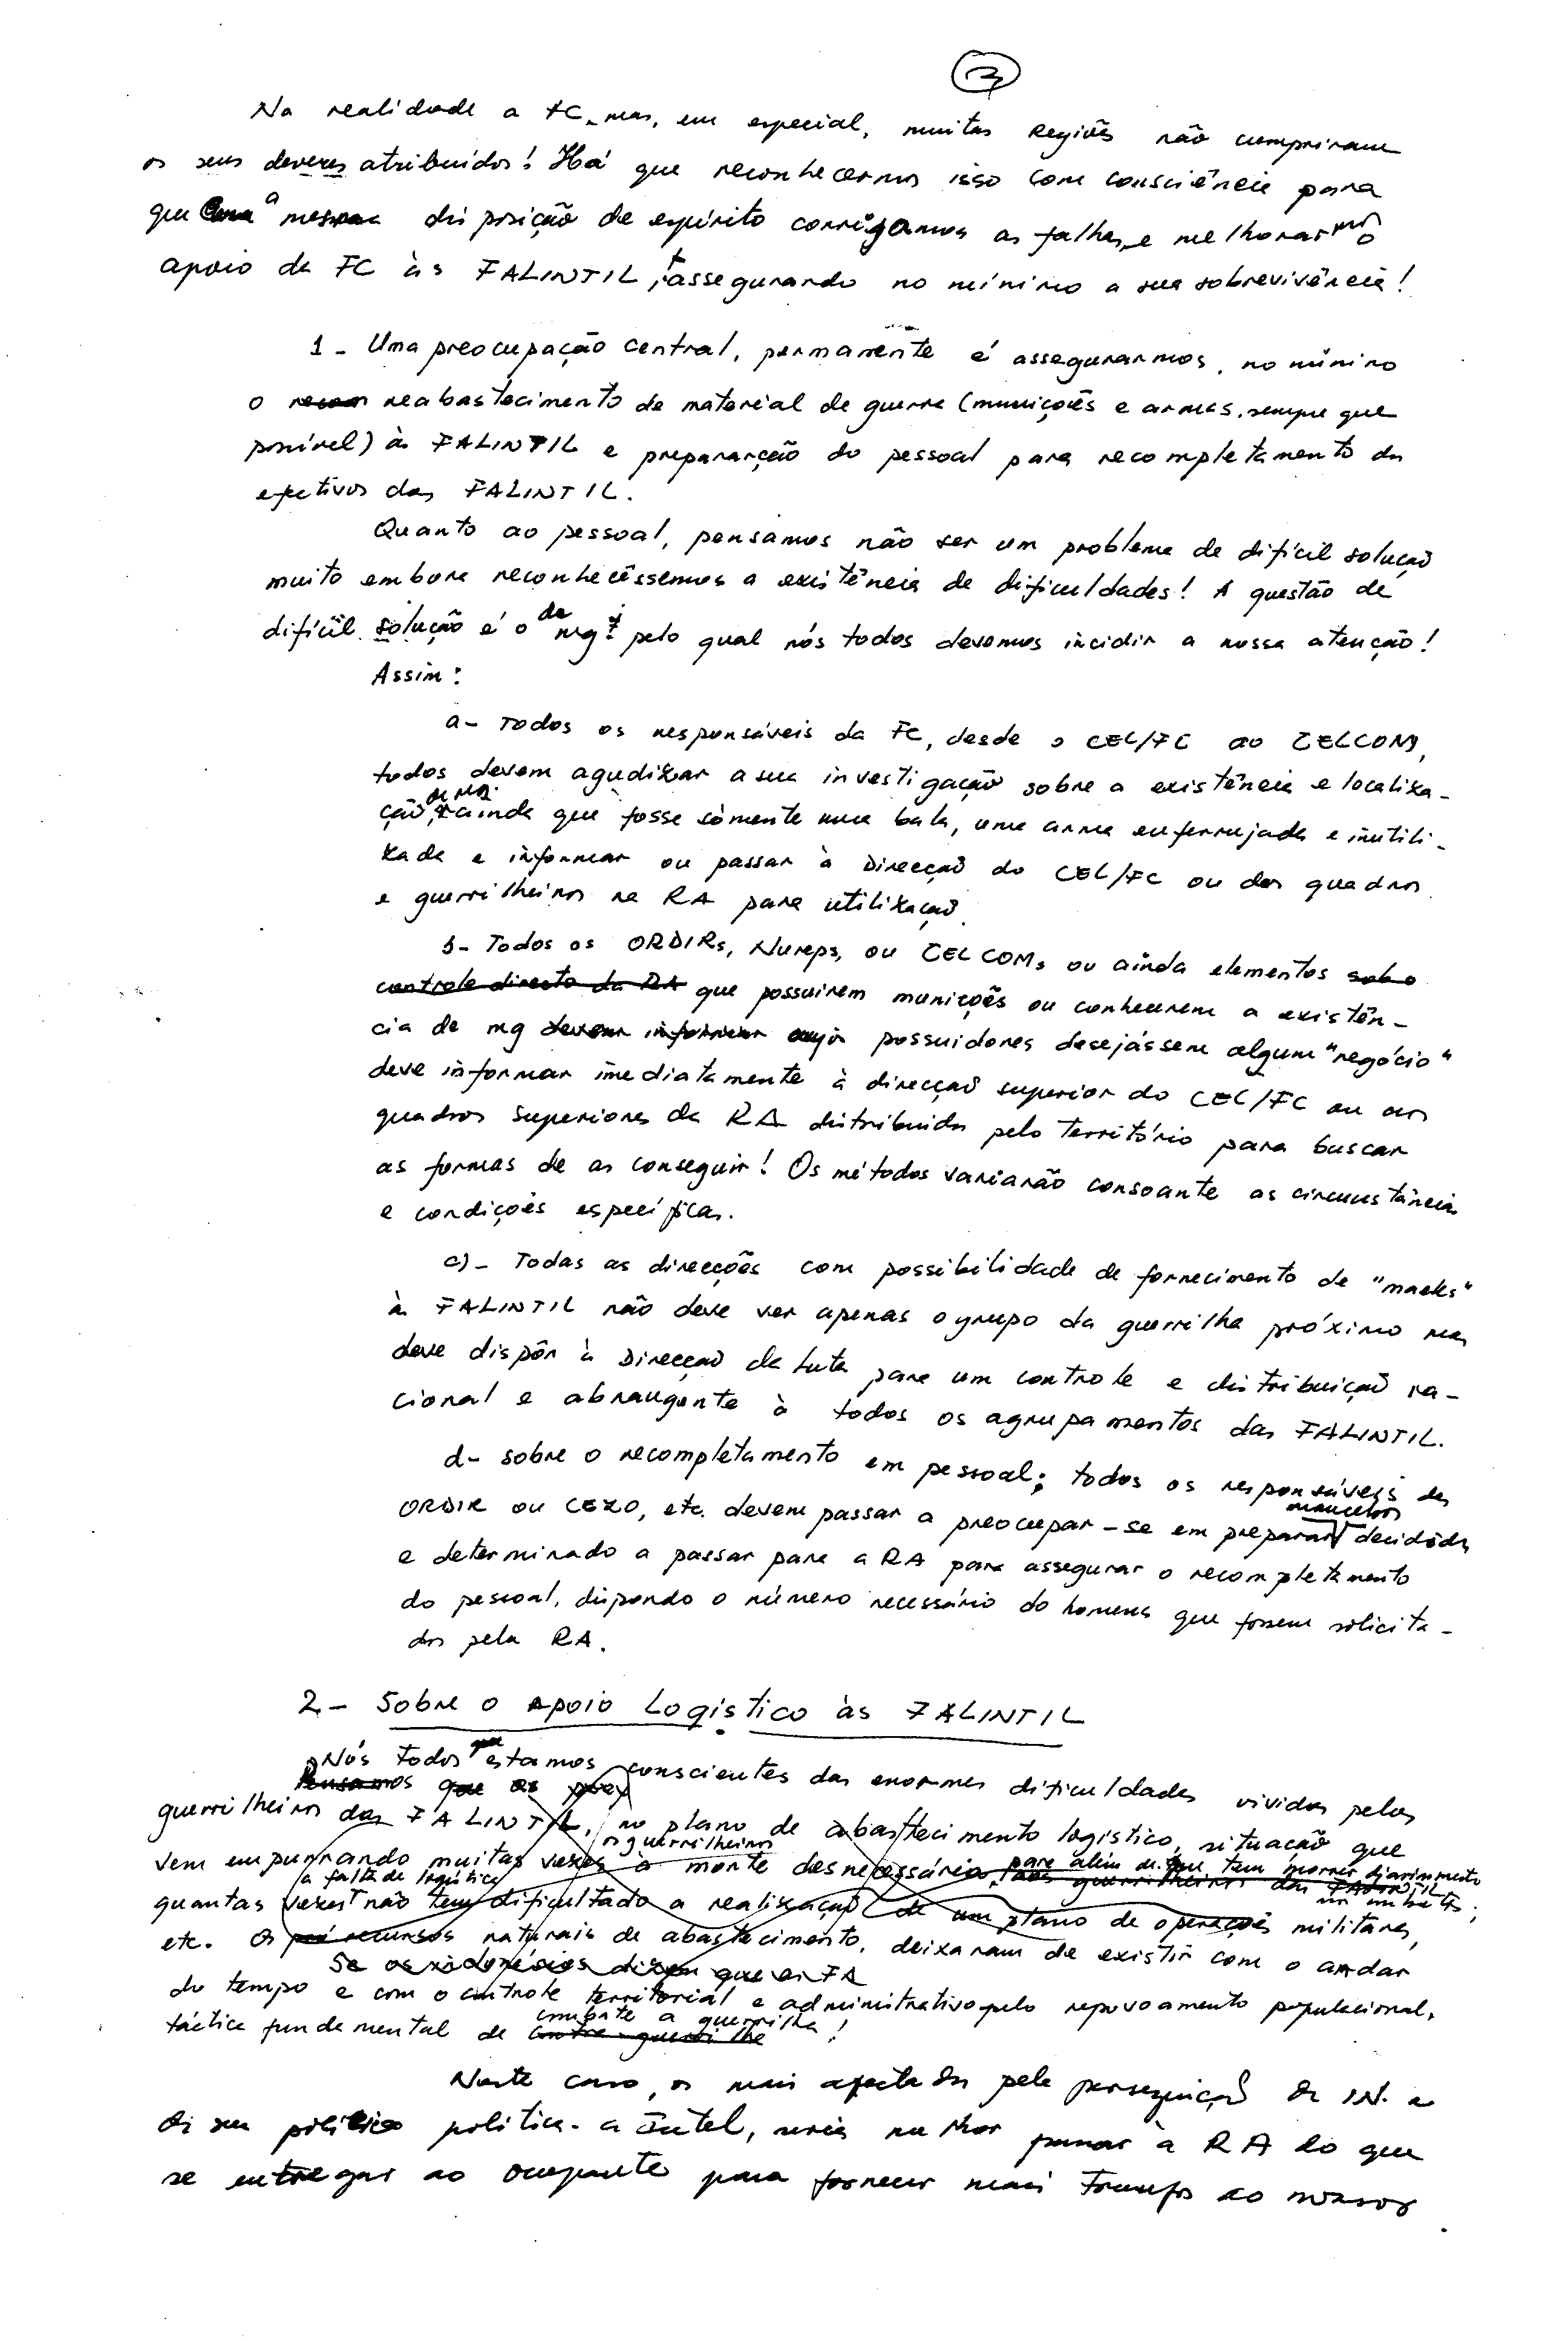 Na realidade a FC, mas, em especial, muitas Regiões não cumpriram
os seus deveres atribuídos! Há que reconhecermos isso com consciência para
que a mesma disposição de espírito corrigamos as falhas, e melhorarmos o
apoio da FC às FALINTIL, assegurando no mínimo a sua sobrevivência!
1 - Uma preocupação central, permanente é assegurarmos, no mínimo
o reabastecimento de material de guerra (munições e armas, sempre que
possível) às FALINTIL e preparação do pessoal para recompletamento dos
efectivos das FALINTIL.
Quanto ao pessoal, pensamos não ser um problema de difícil solução
muito embora reconhecêssemos a existência de dificuldades! A questão de
difícil solução é o de mg pelo qual nós todos devemos incidir a nossa atenção!
Assim:
a - Todos os responsáveis da FC, desde o CEL/FC ao CELCOM,
todos devem agudizar a sua investigação sobre a existência e localiza-
ção de mg. ainda que fosse sòmente uma bala, uma arma enferrujada e inutili-
zada e informar ou passar à Direcção do CEL/FC ou dos quadros
e guerrilheiros na RA para utilização.
b - Todos os ORDIRs, Nureps, ou CELCOMs ou ainda elementos sob o
controle directo da RA que possuirem munições ou conhecerem a existên-
cia de mg devem informar cujos possuidores desejássem algum "negócio"
deve informar imediatamente à direcção superior do CEL/FC ou aos
quadros superiores da RA distribuidos pelo território para buscar
as formas de as conseguir! Os métodos variarão consoante as circunstâncias
e condições específicas.
c) - Todas as direcções com possibilidade de fornecimento de "maeks"
às FALINTIL não deve ver apenas o grupo da guerrilha próximo mas
deve dispôr à Direcção da Luta para um controle e distribuição ra-
cional e abrangente à todos os agrupamentos das FALINTIL.
d - sobre o recompletamento em pessoal; todos os responsáveis dos
ORDIR ou CEXO, etc. devem passar a preocupar-se em preparar mancebos decididos
e determinado a passar para a RA para assegurar o recompletamento
do pessoal, dispondo o número necessário do homens que fossem solicita-
dos pela RA.
2 - Sobre o Apoio Logístico às FALINTIL
Nós todos que estamos conscientes das enormes dificuldades vividas pelos
Pensamos que as
guerrilheiros das FALINTIL, no plano de abastecimento logístico, situação que
vem empurrando muitas vezes os guerrilheiros à morte desnecessária, para além de que tem morrer diariamente
quantas vezes a falta de logística não tem dificultado a realização de um plano de operações militares,
etc. Os recursos naturais de abastecimento, deixaram de existir com o andar
Se os indonésios dizem que as FA
do tempo e com o controle territorial e administrativo pelo repovoamento populacional,
táctica fundamental de combate a guerrilha!
Neste caso, os mais afectados pela perseguição do IN. e
da sua política - a Intel, seria melhor passar à RA do que
se entregar ao ocupante para fornecer mais trunfos ao nossos